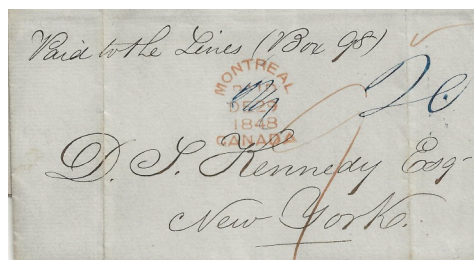 Paid to the Lines (Box 98)
MONTREAL
DE 29
1848
CANADA
D. S. Kennedy Esq.
New York.